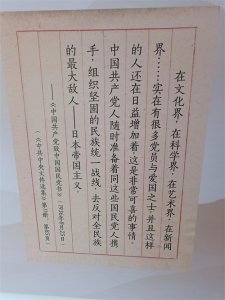 在文化界，在科学界，在艺术界，在新闻
界……实在有很多党员与爱国之士，并且这样
的人还在日益增加着，这是非常可喜的事情。
中国共产党人随时准备着同这些国民党人携
手，组织坚固的民族统一战线，去反对全民族
的最大敌人——日本帝国主义。
——《中国共产党致中国国民党书》（1936年8月25日）
《中共中央文件选集》第